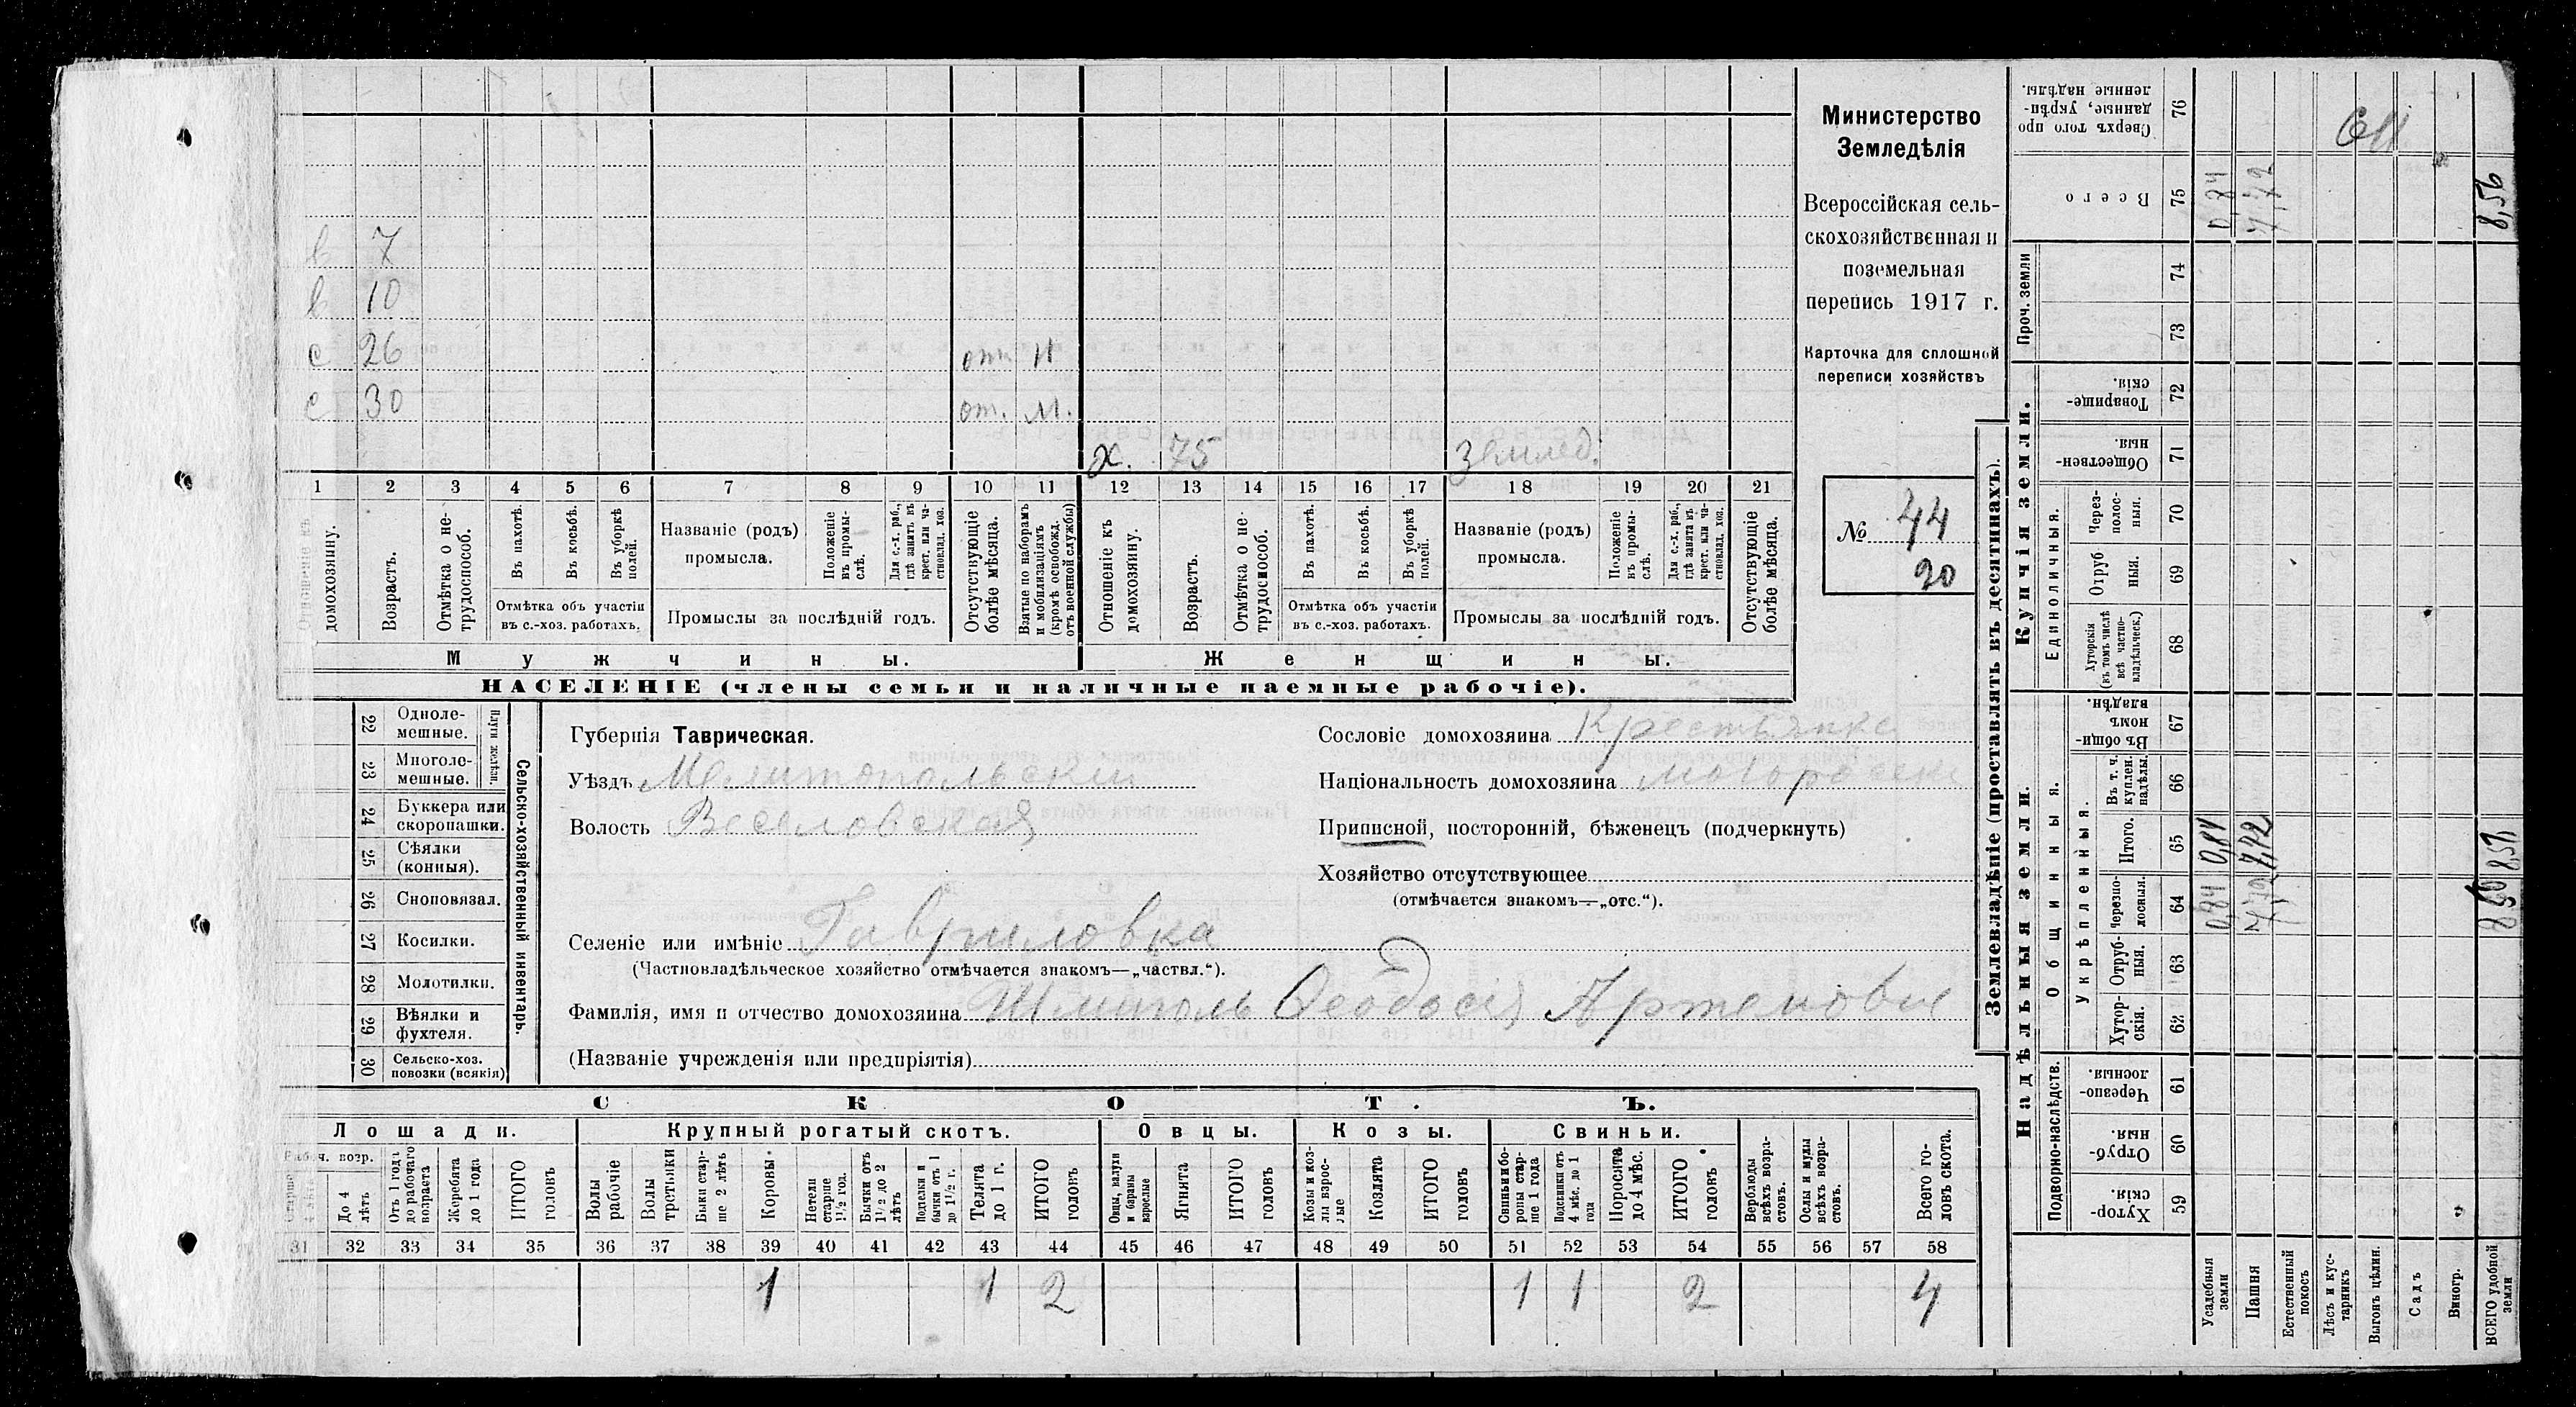 в 7
в 10
с 26 отс М
с 30 от. М.
х. 75 землед.
1 2 3 4 5 6 7 8 9 10 11 12 13 14 15 16 17 18 19 20 21
Отношеніе къ домохозяину.
Возрастъ.
Отмѣтка о не-
трудоспособ.
Въ пахотѣ.
Въ косьбѣ.
Въ уборкѣ
полей.
Отмѣтка объ участіи
въ с.-хоз. работахъ.
Названіе (родъ)
промысла.
Положеніе
въ промы-
слѣ.
Для с.-х. раб.,
гдѣ занятъ въ
крест. или ча-
стновлад. хоз.
Промыслы за послѣдній годъ.
Отсутствующіе
болѣе мѣсяца.
Взятые по наборамъ
и мобилизаціямъ
(кромѣ освобожд.
отъ военной службы)
Отношеніе къ
домохозяину.
Возрастъ.
Отмѣтка о не-
трудоспособ.
Въ пахотѣ.
Въ косьбѣ.
Въ уборкѣ
полей.
Отмѣтка объ участіи
въ с.-хоз. работахъ.
Названіе (родъ)
промысла.
Положеніе
въ промы-
слѣ.
Для с.-х. раб.,
гдѣ занята въ
крест. или ча-
стновлад. хоз.
Промыслы за послѣдній годъ.
Отсутствующіе
болѣе мѣсяца.
Мужчины.
Женщины.
НАСЕЛЕНІЕ (члены семьи и наличные наемные рабочіе).
Министерство
Земледѣлія
Всероссійская сель-
скохозяйственная и
поземельная
перепись 1917 г.
Карточка для сплошной
переписи хозяйствъ
№ 44
20
22 Одноле-
мешные.
23 Многоле-
мешные.
Плуги желѣзн.
24 Буккера или
скоропашки.
25 Сѣялки
(конныя).
26 Сноповязал.
27 Косилки.
28 Молотилки.
29 Вѣялки и
фухтеля.
30 Сельско-хоз.
повозки (всякія)
Сельско-хозяйственный инвентарь.
Губернія Таврическая.
Уѣздъ Мелитопольскій
Волость Веселовская
Селеніе или имѣніе Гавриловка
(Частновладѣльческое хозяйство отмѣчается знакомъ—„частвл.“).
Фамилія, имя и отчество домохозяина Шмиголь Феодосія Артемовна
(Названіе учрежденія или предпріятія)
Сословіе домохозяина Крестьянка
Національность домохозяина малороссы
Приписной, посторонній, бѣженецъ (подчеркнуть)
Хозяйство отсутствующее
(отмѣчается знакомъ—„отс.“).
СКОТЪ.
Лошади.
Крупный рогатый скотъ.
Овцы.
Козы.
Свиньи.
Рабоч. возр.
Старше
4 лѣтъ
До 4
лѣтъ
Отъ 1 года
до рабочаго
возраста
Жеребята
до 1 года
ИТОГО
головъ
Волы
рабочіе
Волы
третьяки
Быки стар-
ше 2 лѣтъ
Коровы
Нетели
старше
1½ год.
Бычки отъ
1½ до 2
лѣтъ
Подтелки и
бычки отъ 1
до 1½ г.
Телята
до 1 г.
ИТОГО
головъ
Овцы, валухи
и бараны
взрослые
Ягнята
ИТОГО
головъ
Козы и коз-
лы взрос-
лые
Козлята
ИТОГО
головъ
Свиньи и бо-
ровы стар-
ше 1 года
Подсвинки отъ
4 мѣс. до 1
года
Поросята
до 4 мѣс.
ИТОГО
головъ
Верблюды
всѣхъ возра-
стовъ.
Ослы и мулы
всѣхъ возра-
стовъ.
Всего го-
ловъ скота.
31 32 33 34 35 36 37 38 39 40 41 42 43 44 45 46 47 48 49 50 51 52 53 54 55 56 57 58
1 1 2 1 1 2 4
Землевладѣніе (проставлять въ десятинахъ).
Купчія земли.
Надѣльныя земли.
Сверхъ того про
данные, укрѣп-
ленные надѣлы.
76
Всего
75
0,84
7,72
8,56
Проч. земли
74
73
Товарище-
скія.
72
Обществен-
ныя.
71
Единоличныя.
Через-
полос-
ныя.
70
Отруб
ныя.
69
Хуторскія
(въ томъ числѣ
всѣ частно-
владѣльческ.)
68
Общинныя.
Въ общи-
номъ
владѣн.
67
Укрѣпленныя.
Въ т. ч.
куплен.
надѣлы.
66
Итого.
65
Черезпо-
лосныя.
64
0,84
7,72
Отруб-
ныя.
63
Хутор-
скія.
62
Подворно-наслѣдств.
Черезпо-
лосныя.
61
Отруб-
ныя.
60
Хутор-
скія.
59
Усадебныя
земли
Пашня
Естественный
покосъ
Лѣсъ и кус-
тарникъ
Выгонъ цѣлин.
Садъ
Виногр.
ВСЕГО удобной
земли